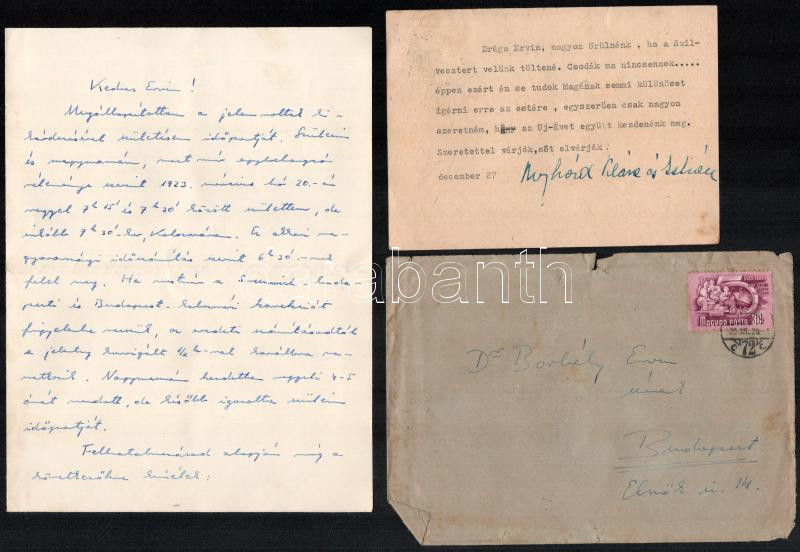 Kedves Ervin!
Megállapítottam a jelen voltak ki-
kérdezésével születésem időpontját. Szüleim
és nagymamám, most már egybehangzó
véleménye szerint 1923. március hó 20.-án
reggel 7h 15' és 7h 30' között születtem, de
inkább 7h 30'-kor, Kolozsvárt. Ez akkori ma-
gyarországi időszámítás szerint 6h 30'-nek
felel meg. Ha ezután a Greenwich-buda-
pesti és Budapest-kolozsvári korrekciót
figyelembe vesszük, az eredeti számításodtól
a jelenleg korrigált 1/2 h-val korábbra
Nagymamám kezdetben reggeli 4-5
órát mondott, de később igazolta szüleim
időpontját.
Felhatalmazásod alapján még a
következőkre kérlek:
Drága Ervin, nagyon örülnénk , ha a Szil-
vesztert velünk töltené. Csodák ma nincsennek.....
éppen ezért én se tudok Magának semmi különöset
igérni erre az estére , egyszerüen csak nagyon
szeretném, az Uj-Évet együtt kezdenénk meg.
Szeretettel várják,sőt elvárják:
december 27 Klára és István
MAGYAR POSTA
72
Dr Borbély Ervin
úrnak
Budapest
Elnök u. 14.
darabanth